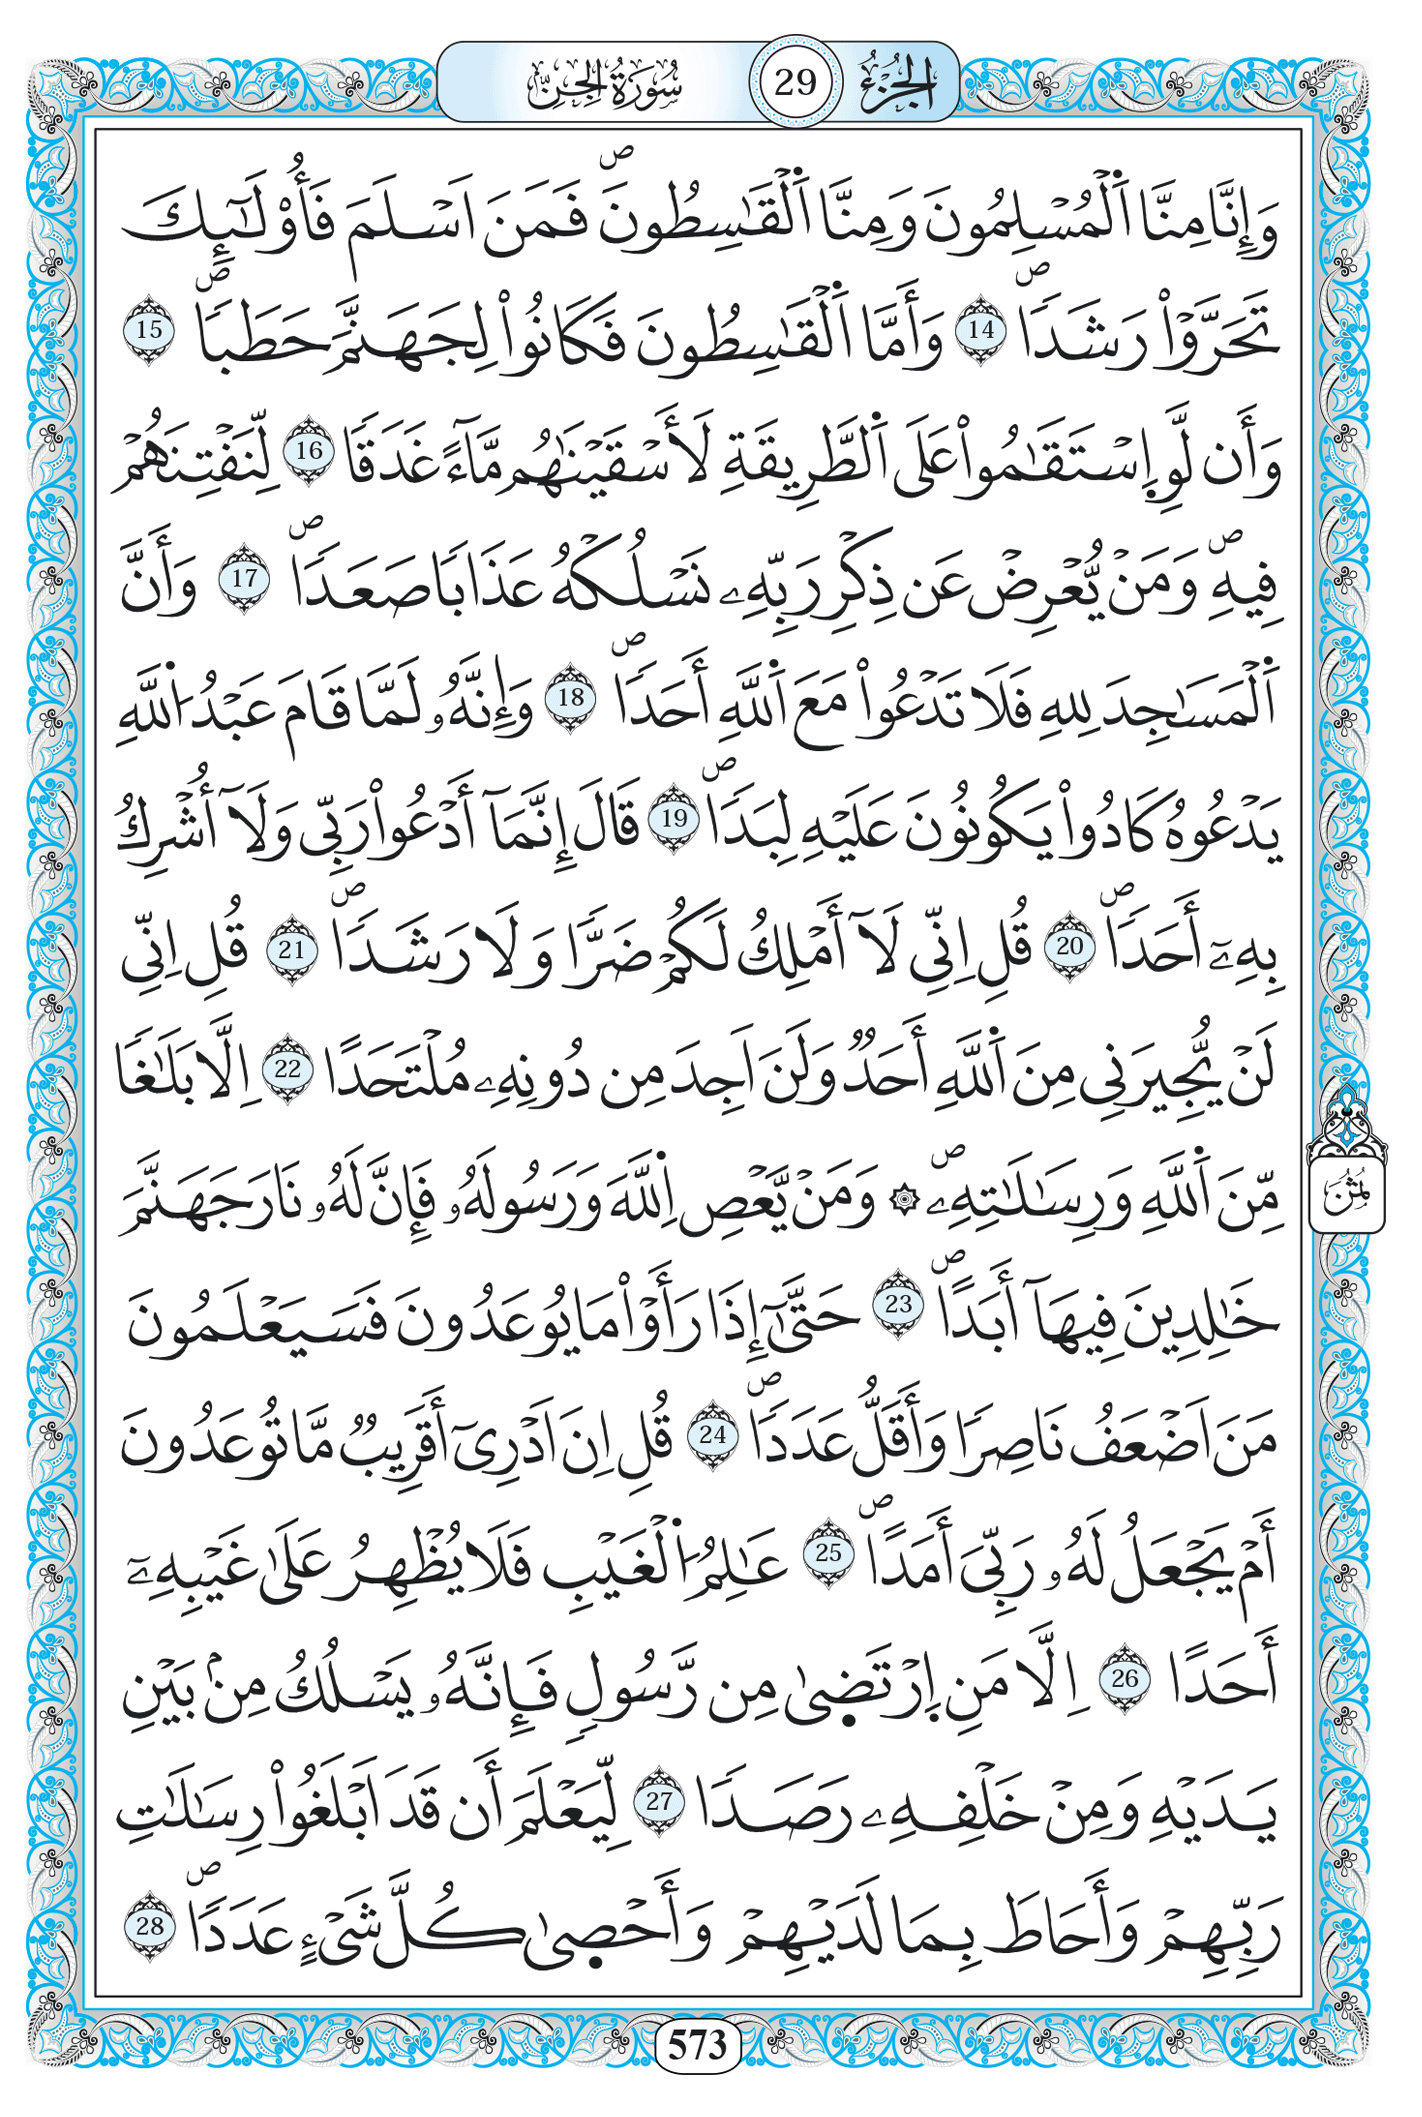 الجزء 29 سورة الجن
وَإِنَّا مِنَّا اَ۬لْمُسْلِمُونَ وَمِنَّا اَ۬لْقَٰسِطُونَۖ فَمَنَ اَسْلَمَ فَأُوْلَٰٓئِكَ
تَحَرَّوْاْ رَشَداٗۖ 14 وَأَمَّا اَ۬لْقَٰسِطُونَ فَكَانُواْ لِجَهَنَّمَ حَطَباٗۖ 15
وَأَن لَّوِ اِ۪سْتَقَٰمُواْ عَلَى اَ۬لطَّرِيقَةِ لَأَسْقَيْنَٰهُم مَّآءً غَدَقاٗ 16 لِّنَفْتِنَهُمْ
فِيهِۖ وَمَنْ يُّعْرِضْ عَن ذِكْرِ رَبِّهِۦ نَسْلُكْهُ عَذَاباٗ صَعَداٗۖ 17 وَأَنَّ
اَ۬لْمَسَٰجِدَ لِلهِ فَلَا تَدْعُواْ مَعَ اَ۬للَّهِ أَحَداٗۖ 18 وَإِنَّهُۥ لَمَّا قَامَ عَبْدُ اُ۬للَّهِ
يَدْعُوهُ كَادُواْ يَكُونُونَ عَلَيْهِ لِبَداٗۖ 19 قَالَ إِنَّمَآ أَدْعُواْ رَبِّي وَلَآ أُشْرِكُ
بِهِۦٓ أَحَداٗۖ 20 قُلِ اِنِّي لَآ أَمْلِكُ لَكُمْ ضَرّاٗ وَلَا رَشَداٗۖ 21 قُلِ اِنِّي
لَنْ يُّجِيرَنِي مِنَ اَ۬للَّهِ أَحَدٞ وَلَنَ اَجِدَ مِن دُونِهِۦ مُلْتَحَداً 22 اِلَّا بَلَٰغاٗ
مِّنَ اَ۬للَّهِ وَرِسَٰلَٰتِهِۦۖ ۞ وَمَنْ يَّعْصِ اِ۬للَّهَ وَرَسُولَهُۥ فَإِنَّ لَهُۥ نَارَ جَهَنَّمَ
خَٰلِدِينَ فِيهَآ أَبَداًۖ 23 حَتَّىٰٓ إِذَا رَأَوْاْ مَا يُوعَدُونَ فَسَيَعْلَمُونَ
مَنَ اَضْعَفُ نَاصِراٗ وَأَقَلُّ عَدَداٗۖ 24 قُلِ اِنَ اَدْرِيٓ أَقَرِيبٞ مَّا تُوعَدُونَ
أَمْ يَجْعَلُ لَهُۥ رَبِّيَ أَمَداًۖ 25 عَٰلِمُ اُ۬لْغَيْبِ فَلَا يُظْهِرُ عَلَىٰ غَيْبِهِۦٓ
ثمن
أَحَداً 26 اِلَّا مَنِ اِ۪رْتَض۪ىٰ مِن رَّسُولٍ فَإِنَّهُۥ يَسْلُكُ مِنۢ بَيْنِ
يَدَيْهِ وَمِنْ خَلْفِهِۦ رَصَداٗ 27 لِّيَعْلَمَ أَن قَدَ اَبْلَغُواْ رِسَٰلَٰتِ
رَبِّهِمْ وَأَحَاطَ بِمَا لَدَيْهِمْ وَأَحْص۪ىٰ كُلَّ شَيْءٍ عَدَداًۖ 28
573